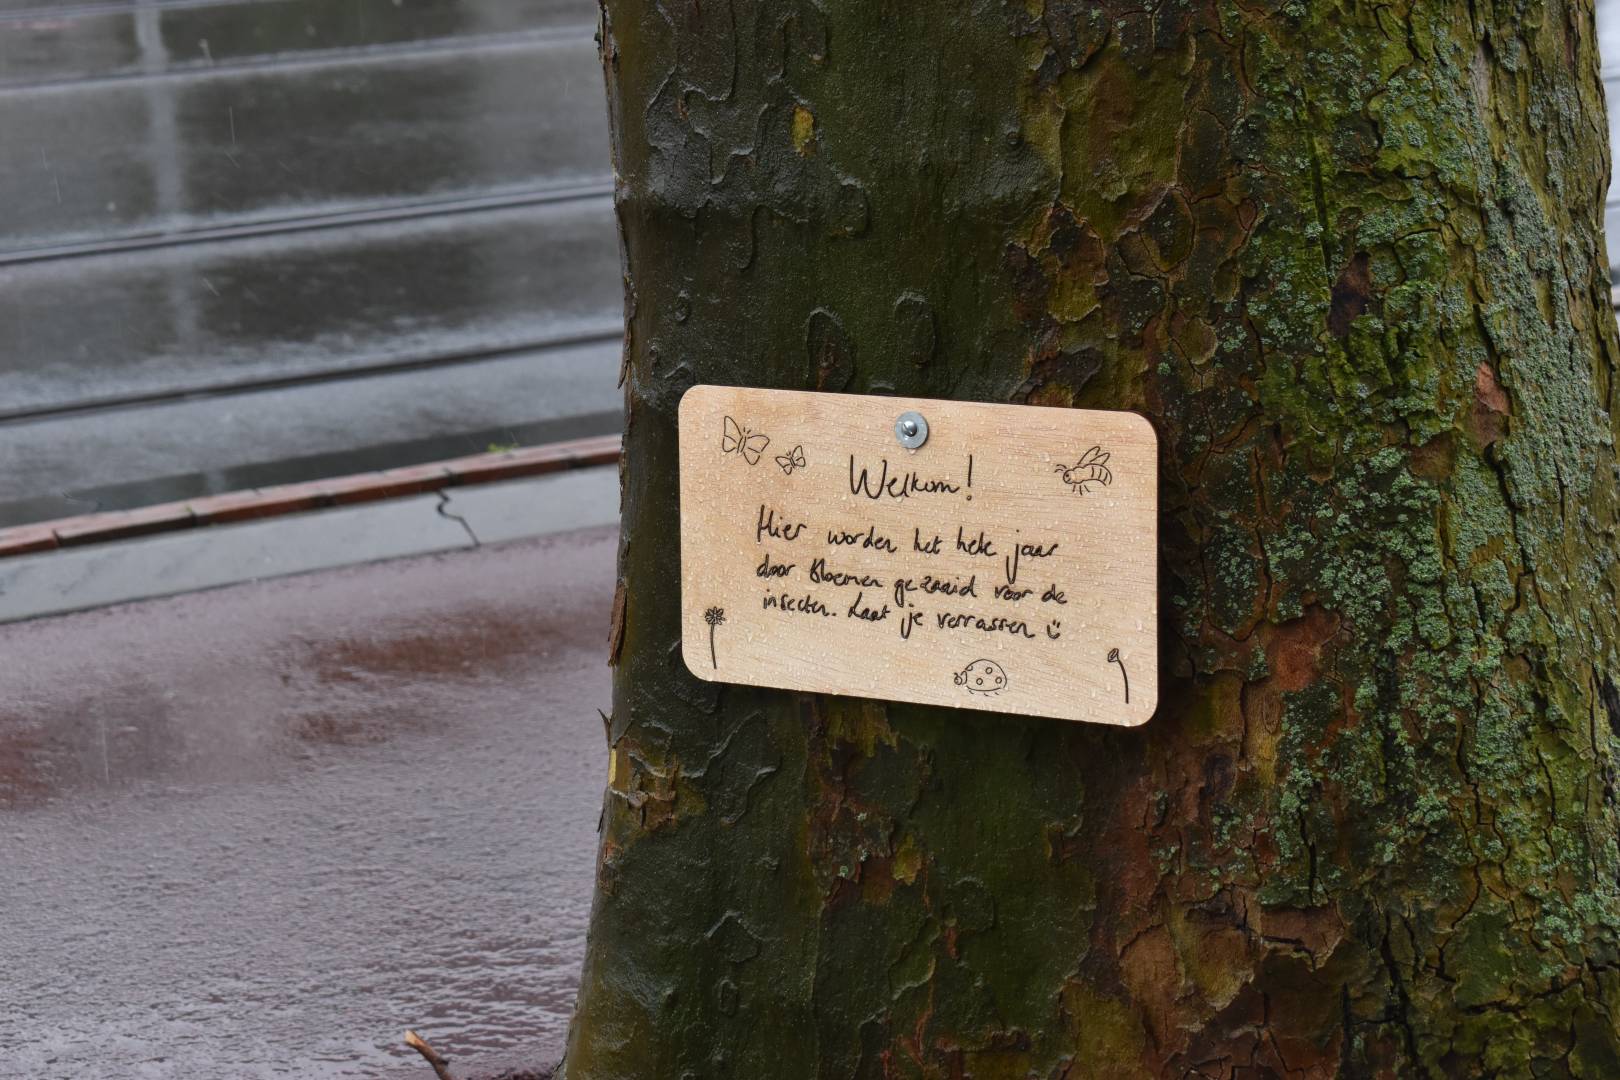 Welkom!
Hier worden het hele jaar
door Bloemen gezaaid voor de
insecten. Laat je verrassen :)